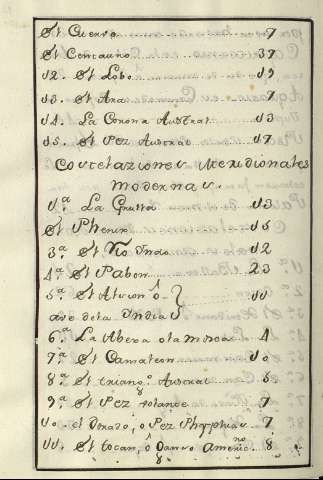 El Cuervo 7
El Centauro 37
12. El Lobo 19
13. El Ara 7
14. La Corona Austral 13
15. El Pez Austral 17
Constelaziones Meridionales
modernas.
1.ª La Grulla 13
El Phenix 15
3.ª El Rio Indo 12
4.ª El Pabon 23
5.ª El ô 11
ave dela India
6.ª La Abexa ola mosca 4
7.ª El Camaleon 10
8.ª El triang.º Austral 5
9.ª El Pez volante 7
10. el Dorado, o Pez 7
11. El tocan, ô Americ.no 8